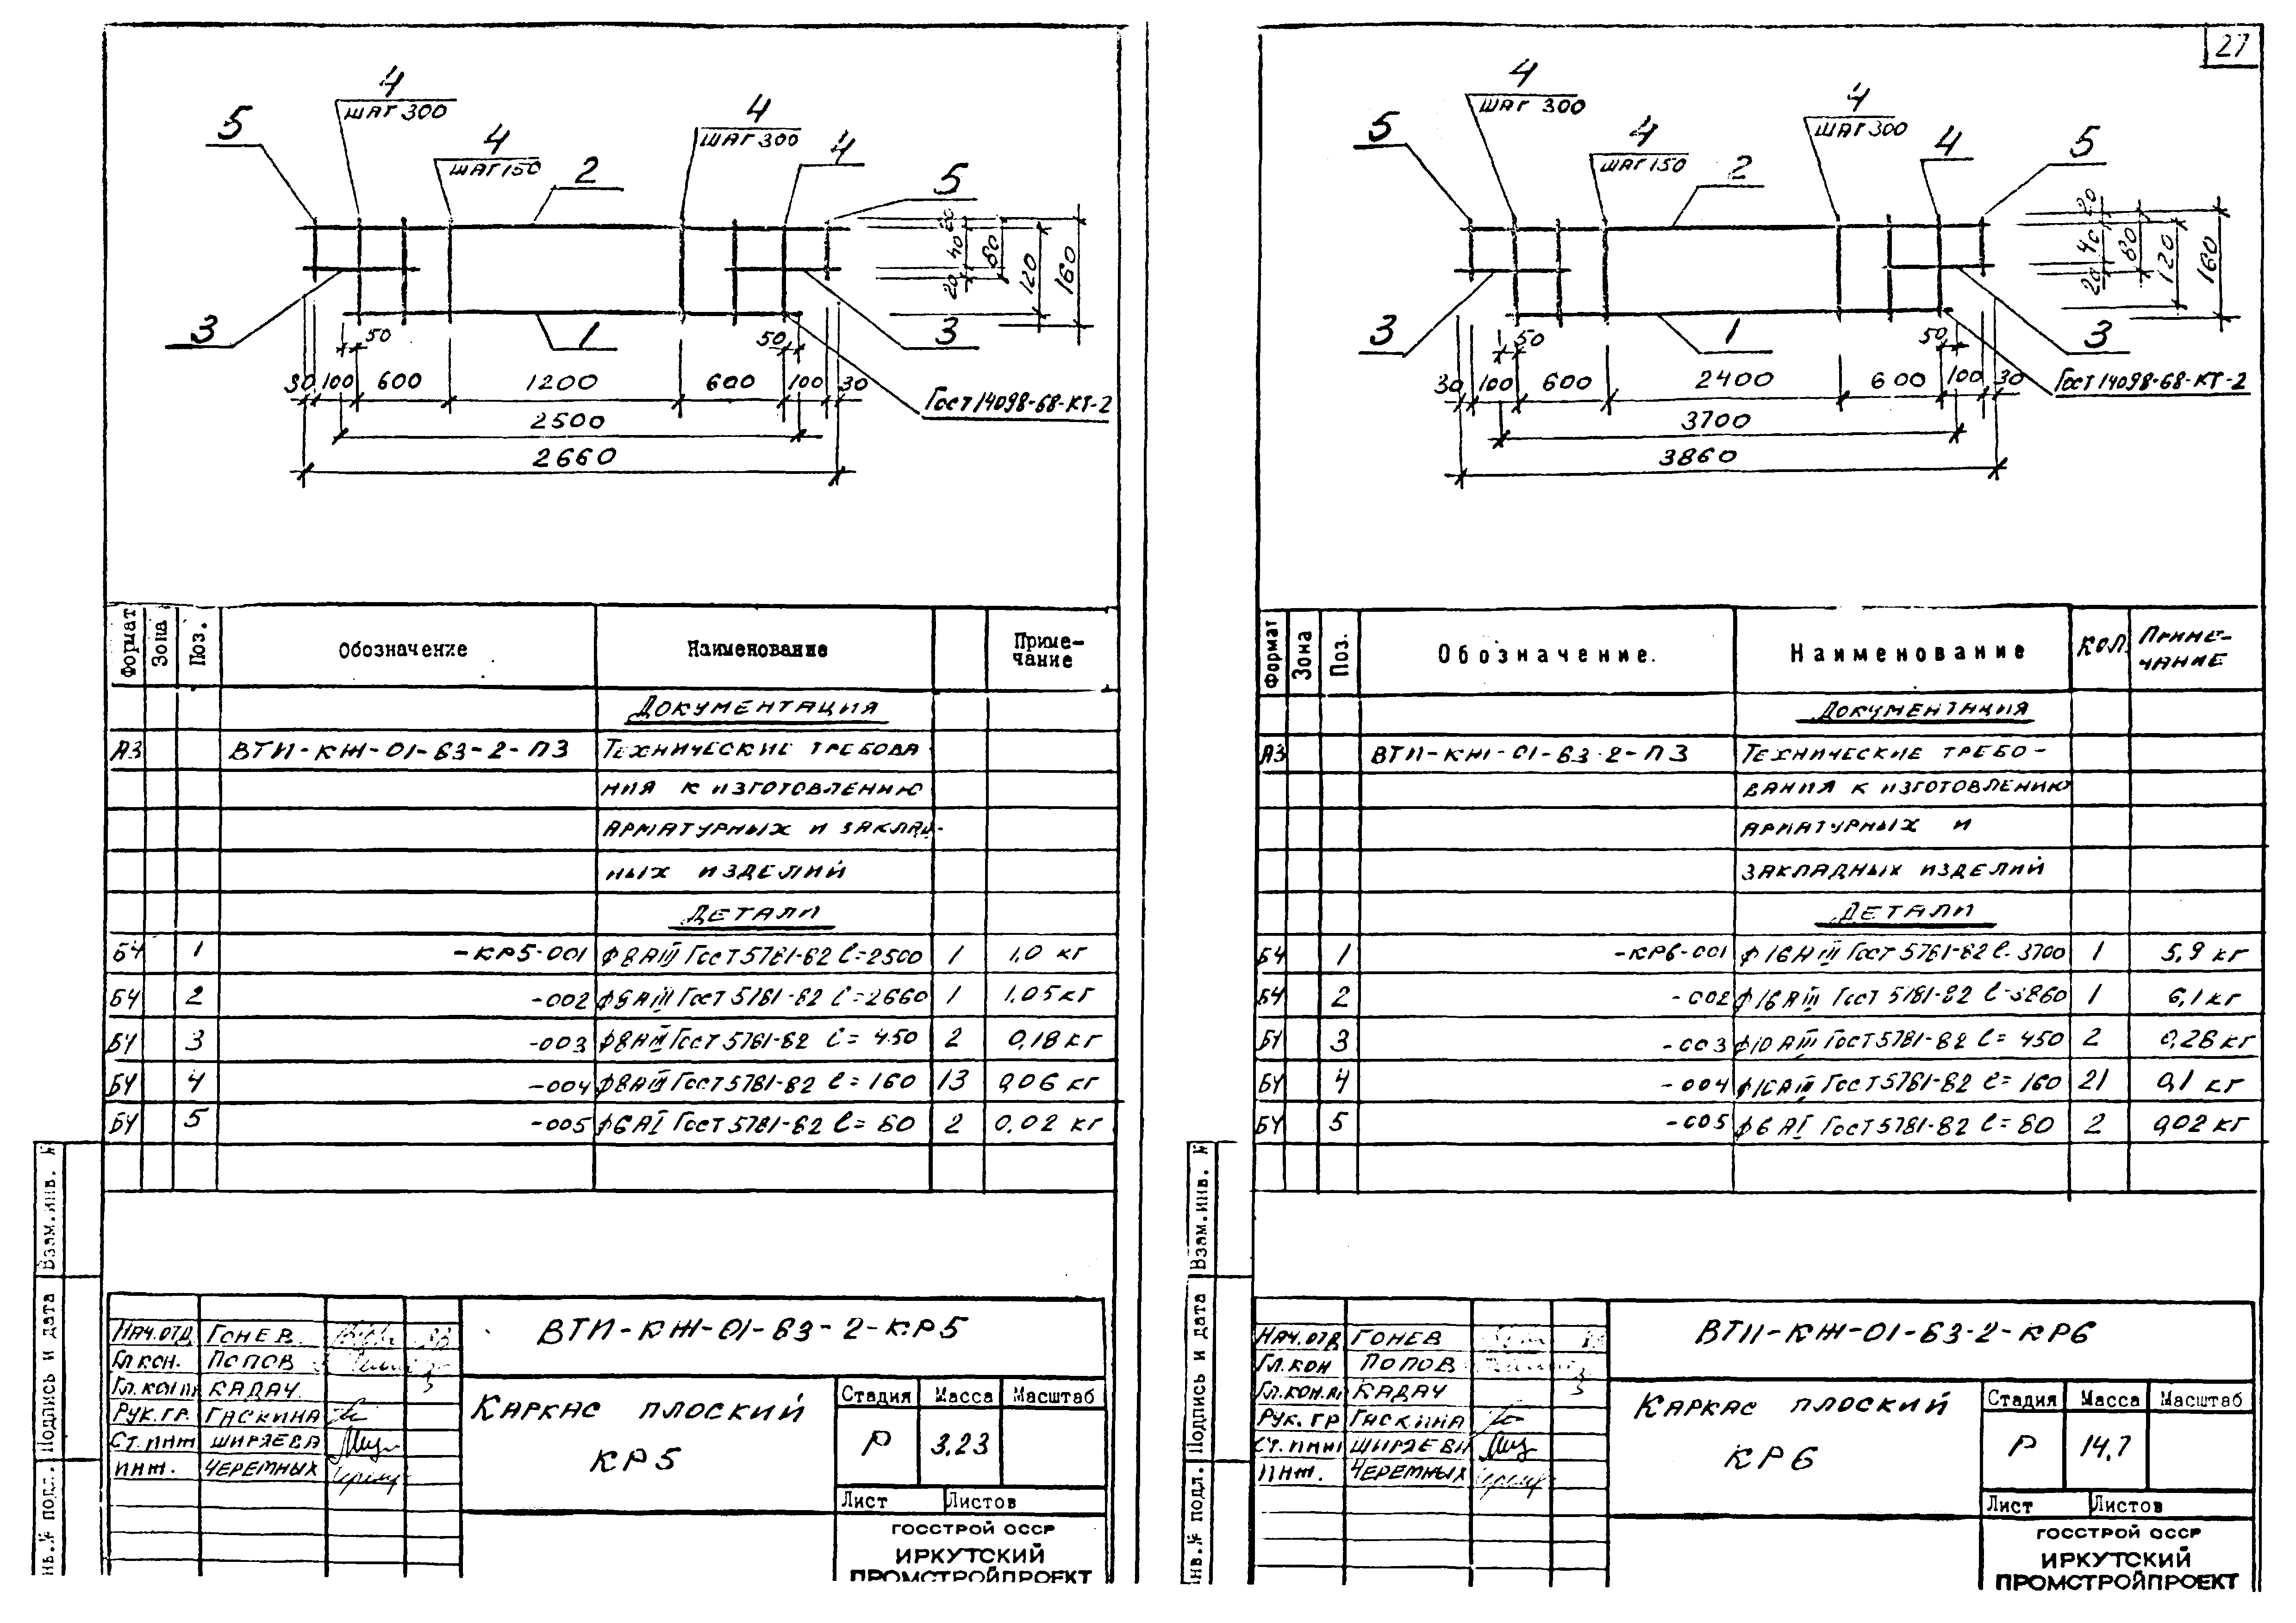 27
4
ШАГ 300
5
4
ШАГ 150
2
4
ШАГ 300
4
5
3
1
3
50
50
20
40
20
80
120
160
30 100 600 1200 600 100 30
2500
2660
ГОСТ 14098-68-КТ-2
Формат Зона Поз. Обозначение Наименование Приме-
чание
ДОКУМЕНТАЦИЯ
А3 ВТП-КЖ-01-63-2-ПЗ ТЕХНИЧЕСКИЕ ТРЕБОВА
НИЯ К ИЗГОТОВЛЕНИЮ
АРМАТУРНЫХ И ЗАКЛАД-
НЫХ ИЗДЕЛИЙ
ДЕТАЛИ
БЧ 1 -КР5-001 ф8АIII ГОСТ 5781-82 l=2500 1 1,0 кг
БЧ 2 -002 ф8АIII ГОСТ 5781-82 l=2660 1 1,05 кг
БЧ 3 -003 ф8АIII ГОСТ 5781-82 l= 450 2 0,18 кг
БЧ 4 -004 ф8АIII ГОСТ 5781-82 l= 160 13 0,06 кг
БЧ 5 -005 ф6АI ГОСТ 5781-82 l= 80 2 0,02 кг
Взам.инв. №
Подпись и дата
нв.№ подл.
НАЧ.ОТД ГОНЕВ
ГЛ.КОН. ПОПОВ
ГЛ.КОН.ПР КАДАЧ
РУК.ГР. ГАСКИНА
СТ.ИНЖ ШИРЯЕВА
ИНЖ. ЧЕРЕМНЫХ
ВТП-КЖ-01-63-2-КР5
КАРКАС ПЛОСКИЙ
КР5
Стадия Масса Масштаб
Р 3,23
Лист Листов
ГОССТРОЙ СССР
ИРКУТСКИЙ
ПРОМСТРОЙПРОЕКТ
4
ШАГ 300
5
4
ШАГ 150
2
4
ШАГ 300
4
5
3
1
3
50
50
20
40
20
80
120
160
30 100 600 2400 600 100 30
3700
3860
ГОСТ 14098-68-КТ-2
Формат Зона Поз. Обозначение. Наименование КОЛ. ПРИМЕ-
ЧАНИЕ
ДОКУМЕНТАЦИЯ
А3 ВТП-КЖ-01-63-2-ПЗ ТЕХНИЧЕСКИЕ ТРЕБО-
ВАНИЯ К ИЗГОТОВЛЕНИЮ
АРМАТУРНЫХ И
ЗАКЛАДНЫХ ИЗДЕЛИЙ
ДЕТАЛИ
БЧ 1 -КР6-001 ф16АIII ГОСТ 5781-82 l= 3700 1 5,9 кг
БЧ 2 -002 ф16АIII ГОСТ 5781-82 l=3860 1 6,1 кг
БЧ 3 -003 ф10АIII ГОСТ 5781-82 l= 450 2 0,28 кг
БЧ 4 -004 ф10АIII ГОСТ 5781-82 l= 160 21 0,1 кг
БЧ 5 -005 ф6АI ГОСТ 5781-82 l= 80 2 0,02 кг
Взам.инв. №
Подпись и дата
нв.№ подл.
НАЧ.ОТД ГОНЕВ
ГЛ.КОН ПОПОВ
ГЛ.КОН.ПР КАДАЧ
РУК.ГР ГАСКИНА
СТ.ИНЖ ШИРЯЕВА
ИНЖ. ЧЕРЕМНЫХ
ВТП-КЖ-01-63-2-КР6
КАРКАС ПЛОСКИЙ
КР6
Стадия Масса Масштаб
Р 14,7
Лист Листов
ГОССТРОЙ СССР
ИРКУТСКИЙ
ПРОМСТРОЙПРОЕКТ